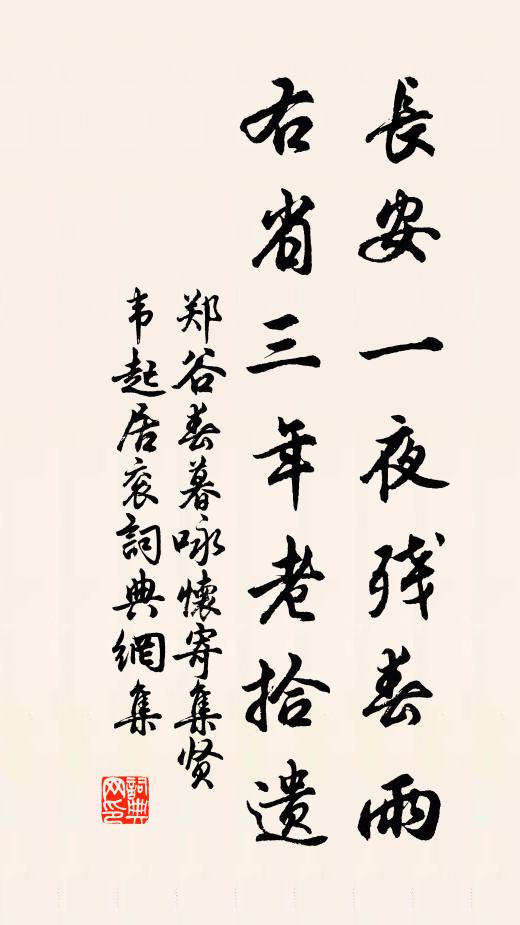 長安一夜残春雨
右省三年老拾遗
郑谷春暮咏懷寄集贤
韦起居衮詞典網集
詞典
网印